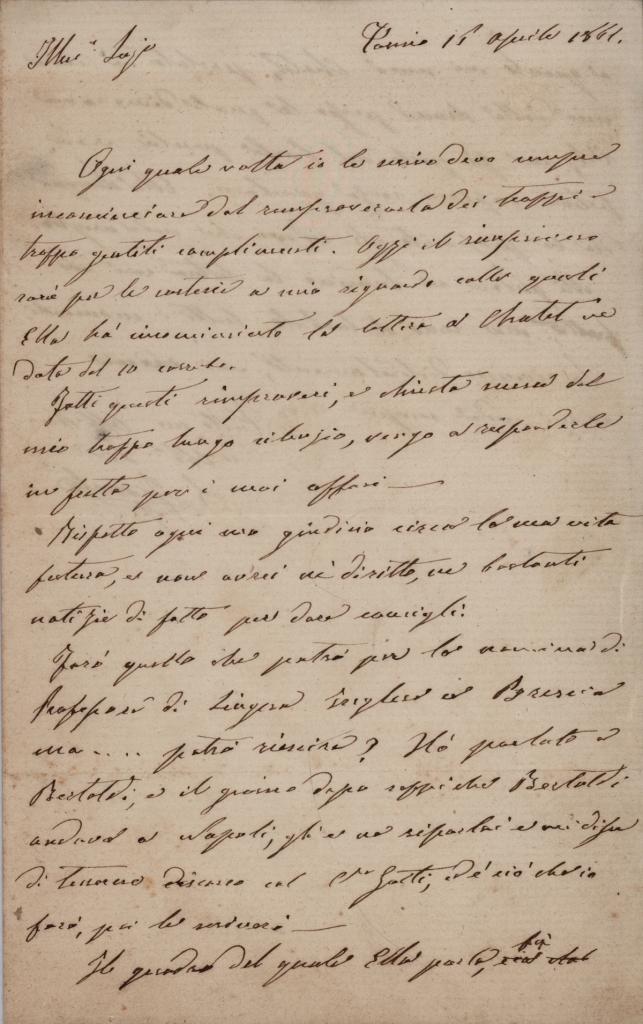 Torino 15 aprile 1861.
Illus.e Sig.e
Ogni quale volta io le scrivo devo sempre
incominciare dal rimproverarla dei troppi e
troppo gentili complimenti. Oggi il rimprovero
sarà per le cortesie a mio riguardo colle quali
Ella ha incominciato la lettera
data del 10 corrente.
Fatti questi rimproveri, e chiesta scusa del
mio troppo lungo silenzio, vengo a risponderle
in fretta per i suoi affari —
Rispetto ogni suo giudizio circa la sua vita
futura, e non avrei nè diritto, ne bastanti
notizie di fatto per dare consigli.
Farò quello che potrò per la nomina di
Professore di Lingua Inglese a Brescia
ma .... potrò riescire? Hò parlato a
Bertoldi, e il giorno dopo seppi che Bertoldi
andava a Napoli, gli e ne riparlai e mi disse
di tenerne discorso col C.re Gatti, ed è ciò che io
farò, poi le scriverò —
Il quadro del quale Ella parla,